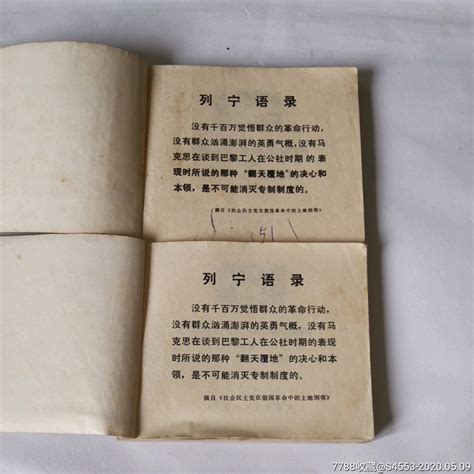 列宁语录
没有千百万觉悟群众的革命行动，
没有群众汹涌澎湃的英勇气概，没有马
克思在谈到巴黎工人在公社时期的表
现时所说的那种“翻天覆地”的决心和
本领，是不可能消灭专制制度的。
摘自《社会民主党在俄国革命中的土地纲领》
列宁语录
没有千百万觉悟群众的革命行动，
没有群众汹涌澎湃的英勇气概，没有马
克思在谈到巴黎工人在公社时期的表现
时所说的那种“翻天覆地”的决心和本
领，是不可能消灭专制制度的。
摘自《社会民主党在俄国革命中的土地纲领》
7788收藏@S4553-2020.05.09